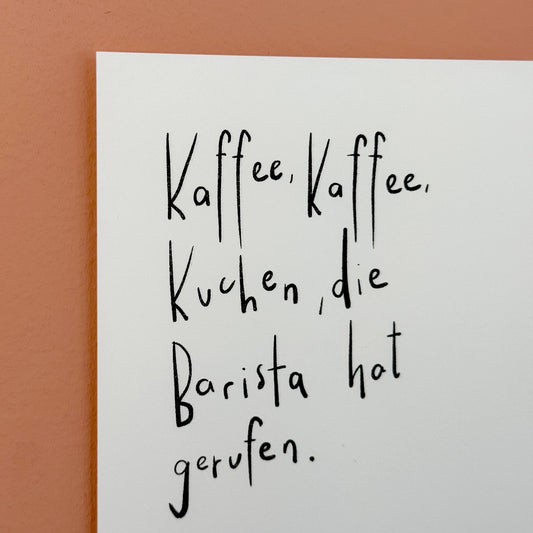 Kaffee, Kaffee,
Kuchen, die
Barista hat
gerufen.